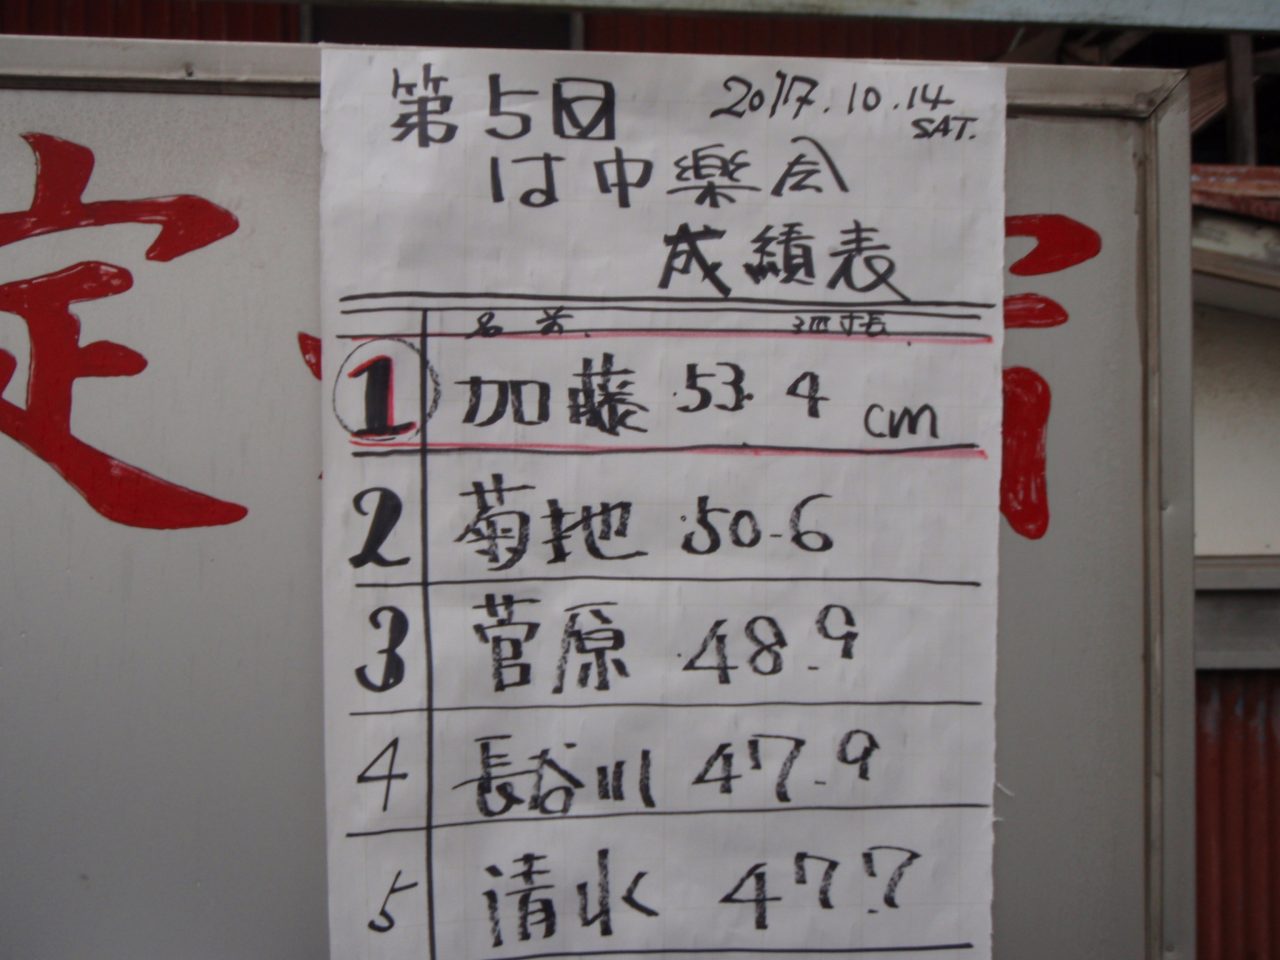 第5回
2017.10.14
SAT.
は中楽会
成績表
名前
1 加藤 53.4 cm
2 菊地 50.6
3 菅原 48.9
4 長谷川 47.9
5 清水 47.7
定